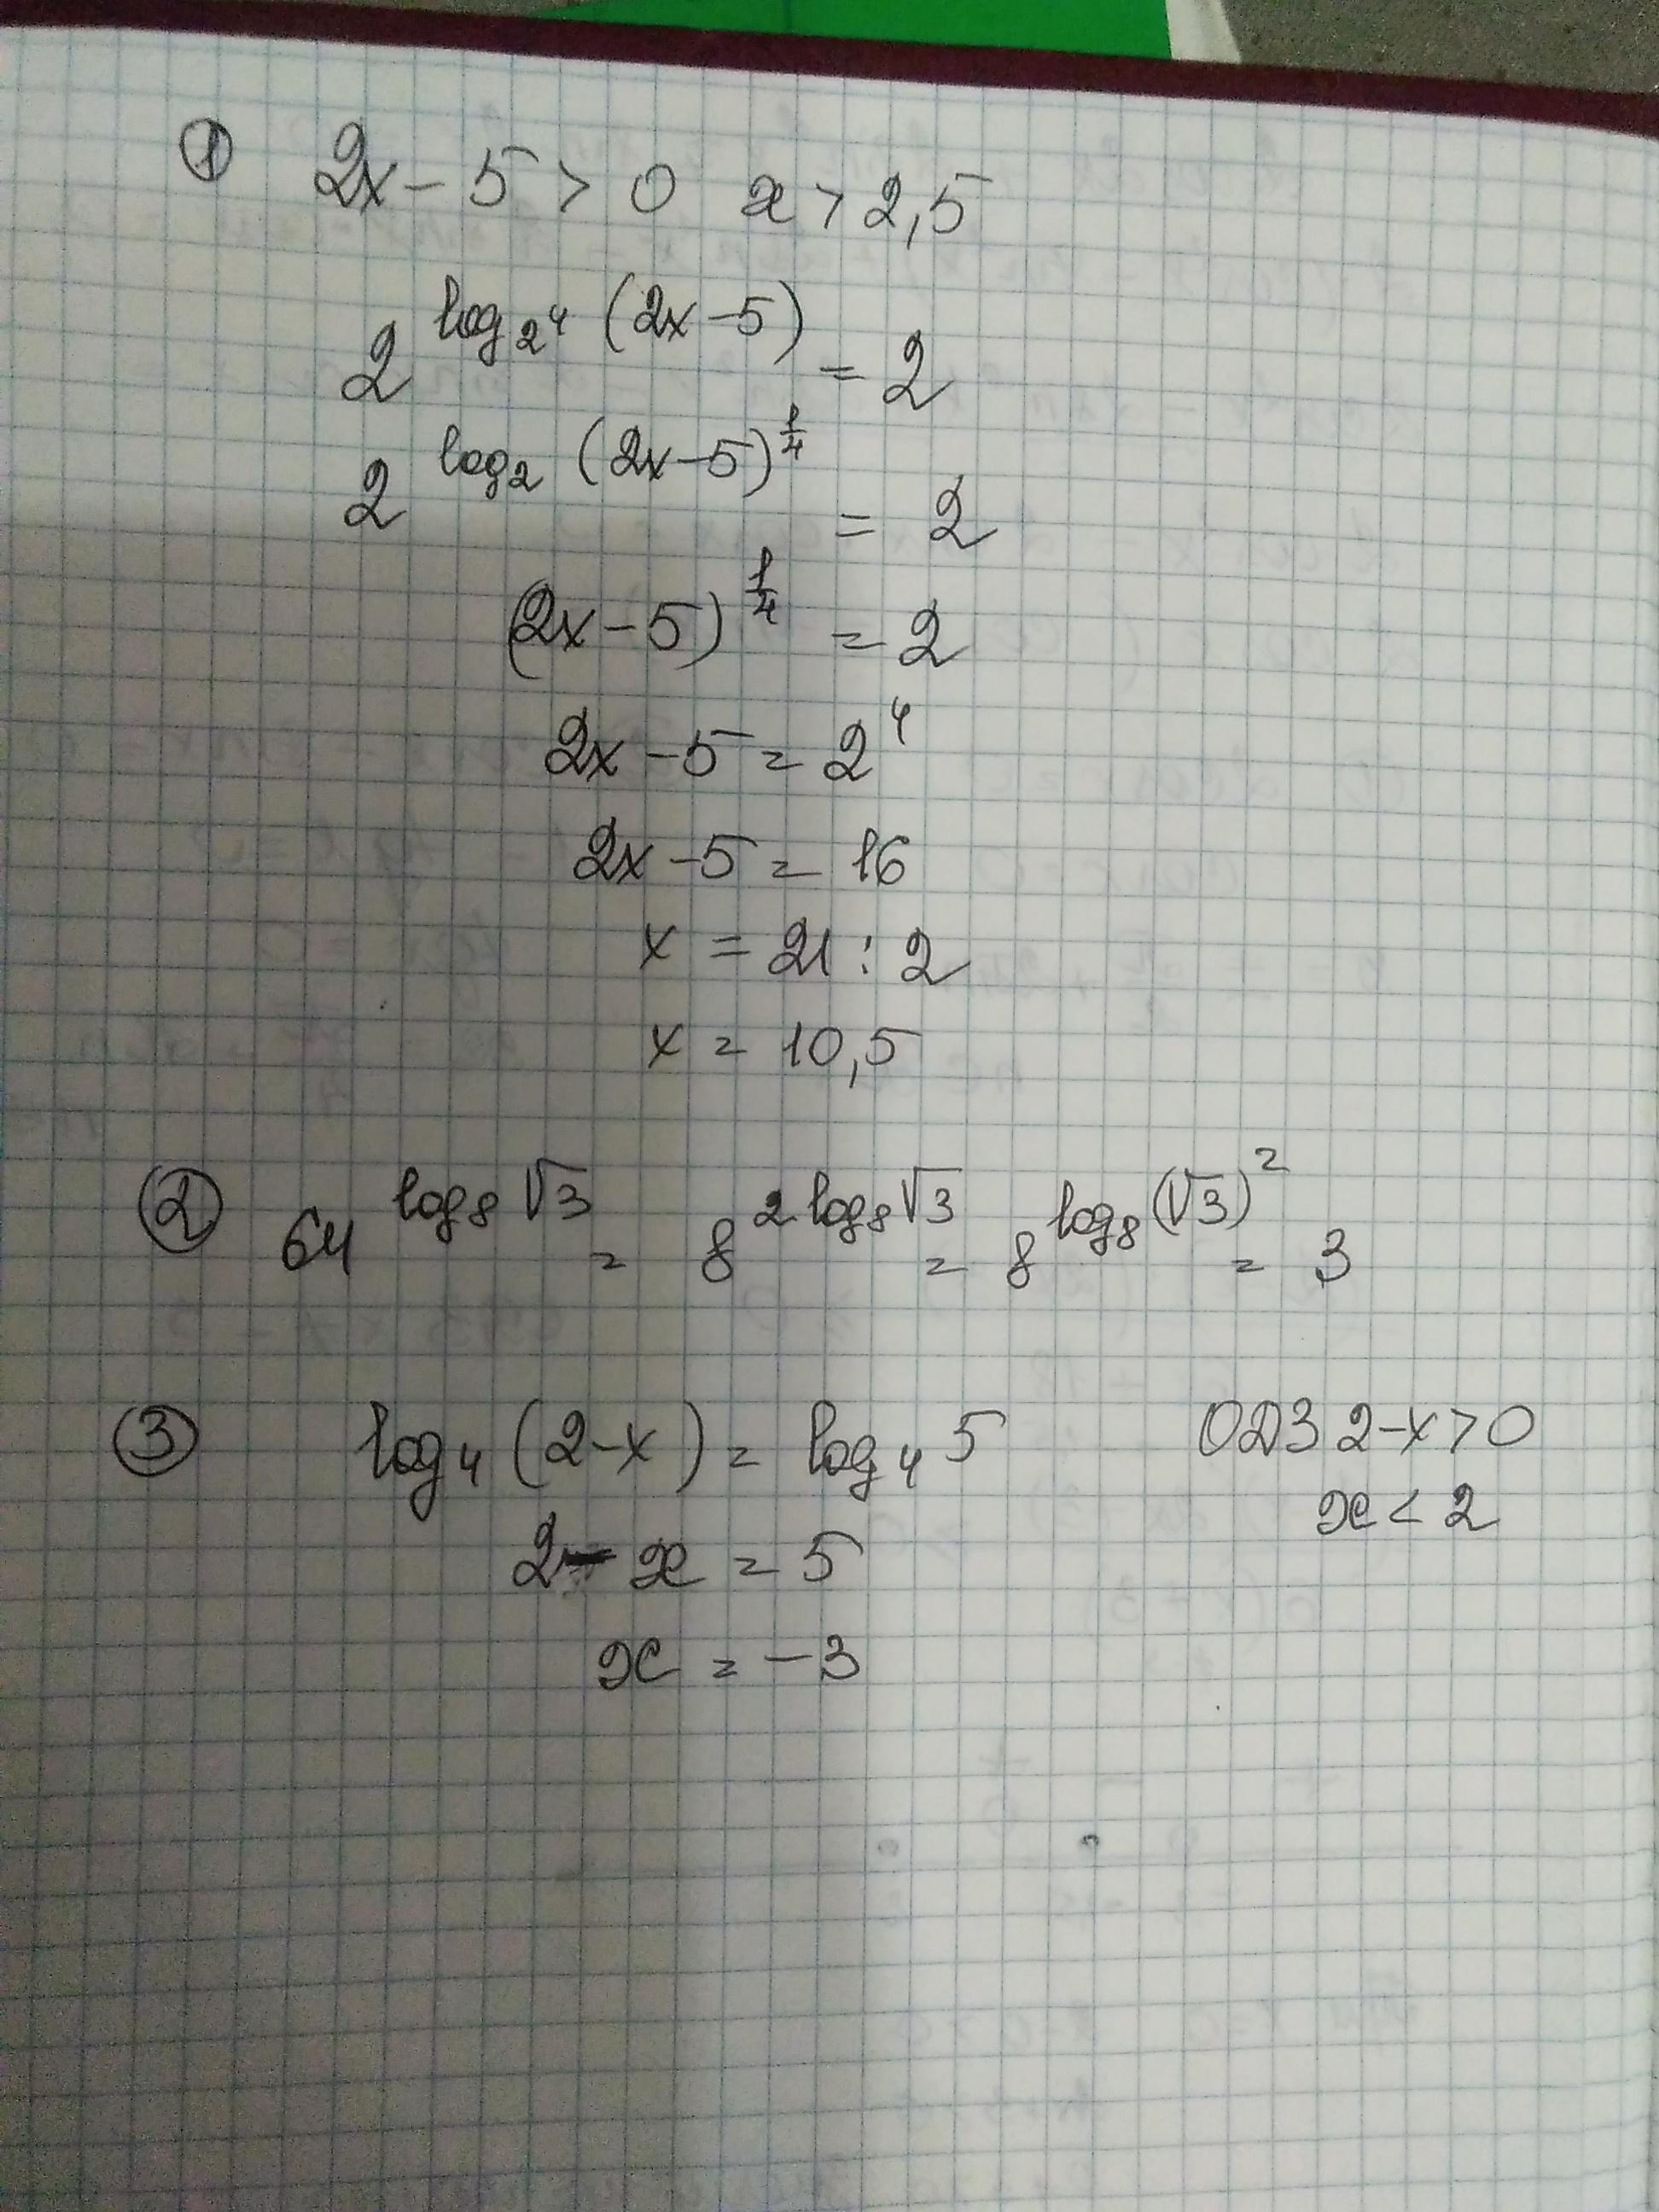 ① 2x - 5 > 0 x > 2,5
2^{log_{2^4} (2x-5)} = 2
2^{log_2 (2x-5)^{1/4}} = 2
(2x-5)^{1/4} = 2
2x - 5 = 2^4
2x - 5 = 16
x = 21 : 2
x = 10,5
② 64^{log_8 √3} = 8^{2 log_8 √3} = 8^{log_8 (√3)^2} = 3
③ log_4 (2-x) = log_4 5 ОДЗ 2-x>0
2 - x = 5 x < 2
x = -3